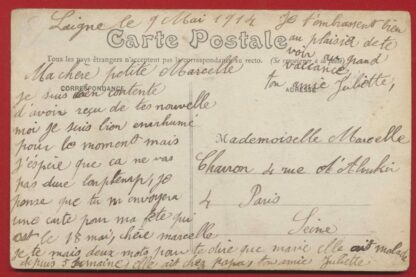 Laigne le 9 Mai 1914
Carte Postale
Tous les pays étrangers n'acceptent pas la correspondance au recto. (Se renseigner à la
CORRESPONDANCE
Ma chère petite Marcelle
je suis bien contente
d'avoir reçu de tes nouvelle
moi je suis bien enrhumé
pour le moment mais
j'éspère que ca ne vas
pas dure lonptemp, je
pense que tu m'envoyera
une carte pour ma fête qui
est le 18 mai, chère marcelle
je te mais deux mots pour te dire que marie elle ait malade
depuis 5 semaine, elle ait chez papa ton amie Juliette
Je t'embrassent bien
au plaisir de te
voir au grand
vacance,
ton amie Juliette,
ADRESSE
Mademoiselle Marcelle
4 rue
4 Paris
Seine